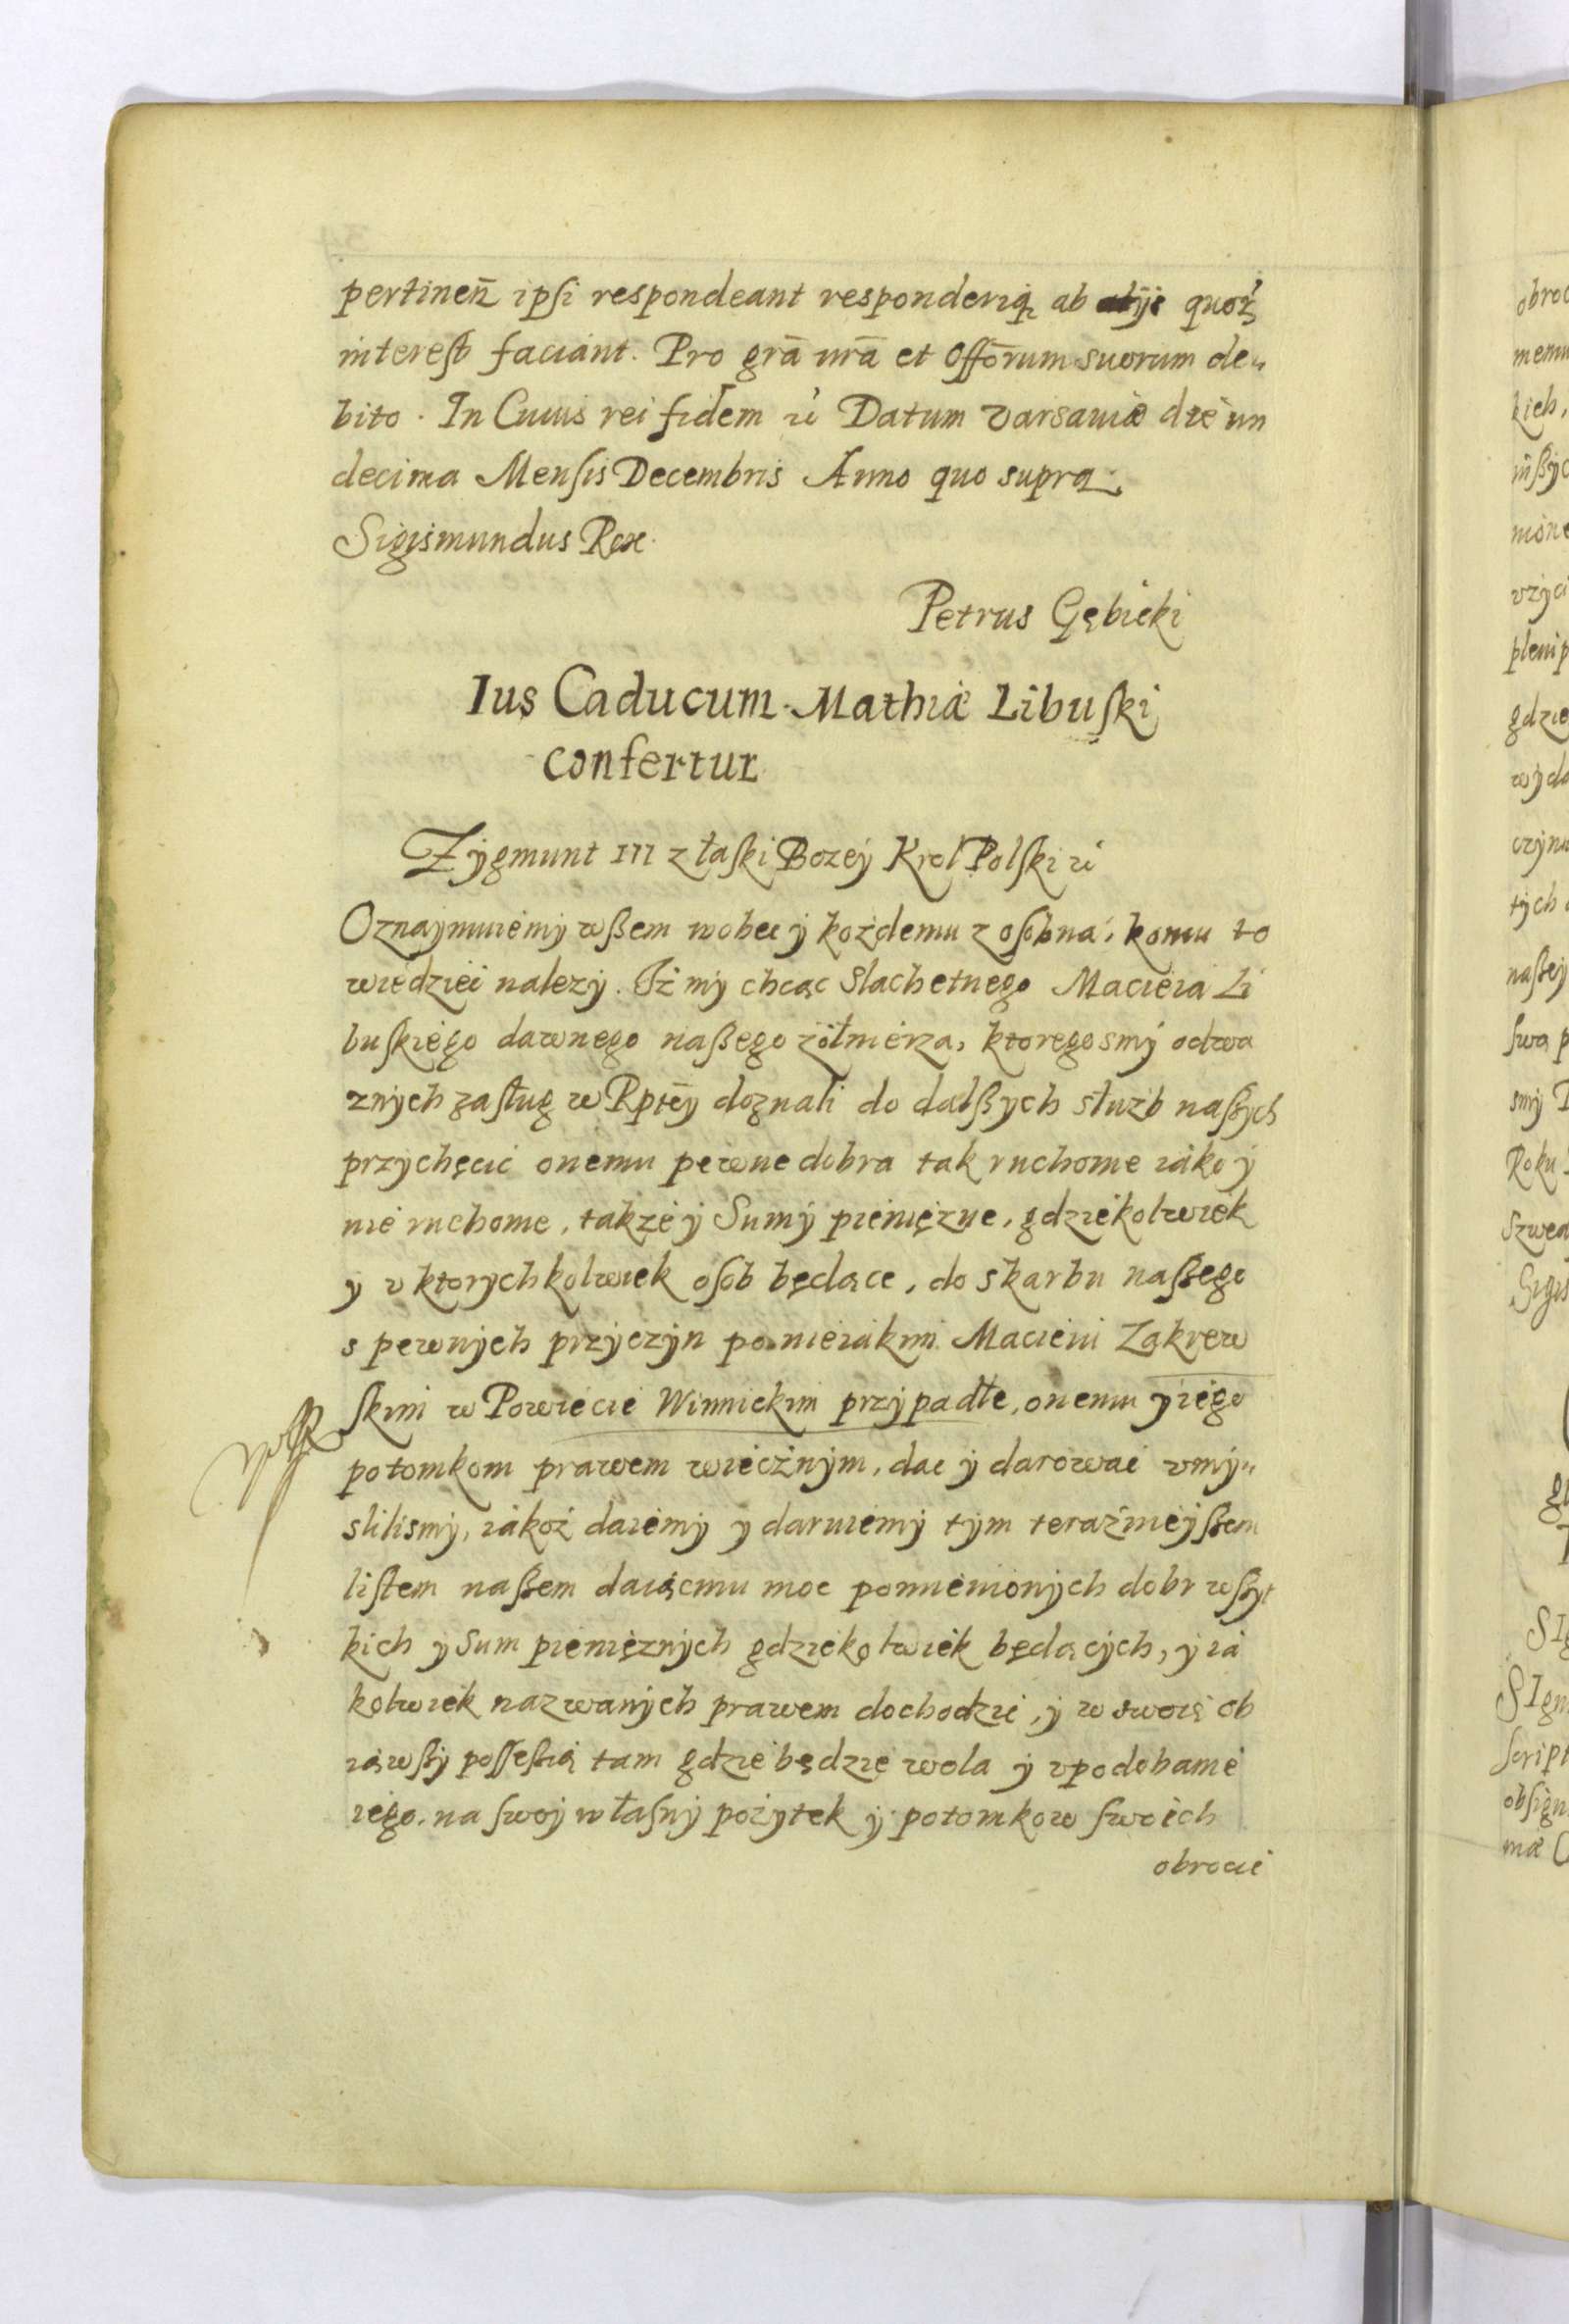 pertineñ ipſi respondeant responderiq́ ab alijs quoꝝ
intereſt faciant. Pro grā nrā et Offōrum suorum de„
bito. In Cuius rei fidem Datum Varsaviæ die un
decima Menſis Decembris Anno quo supra.
Sigismundus Rex.
Petrus Gębicki
Ius Caducum Mathiæ Libuſki
confertur
Zÿgmunt III z łaſki Bozeÿ Krol Polſki
Oznaÿmuiemÿ wßem wobec ÿ kożdemu z oſobna, komu to
wiedziec nalezÿ. Iż mÿ chcąc Slachetnego Macieia Li
buſkiego dawnego naßego żołnierza, ktoregosmÿ odwa
znÿch zaſług w Rptēÿ doznali do dalßÿch służb naßÿch
przÿchęcic onemu pewne dobra tak ruchome iako ÿ
nie ruchome, takze ÿ Sumÿ pieniężne, gdziekolwiek
ÿ v ktorÿchkolwiek oſob będące, do skarbu naßego
s pewnÿch przÿczÿn po nieiakim Macieiu Zakrew
ſkim w Powiecie Winnickim przÿpadłe, onemu ÿ iego
potomkom prawem wiecznÿm, dac ÿ darowac vmÿ„
slilismÿ, iakoż daiemÿ ÿ daruiemÿ tÿm teraźnieÿßem
liſtem naßem daiącmu moc pomienionÿch dobr wßÿt
kich ÿ Sum pienięznÿch gdziekolwiek będącÿch, ÿ ia
kolwiek nazwanÿch prawem dochodzic, ÿ w swoię ob
iąwßÿ poſſeſsią tam gdzie będzie wola ÿ vpodobanie
iego, na ſwoÿ własnÿ pożÿtek ÿ potomkow ſwoich
obrocic